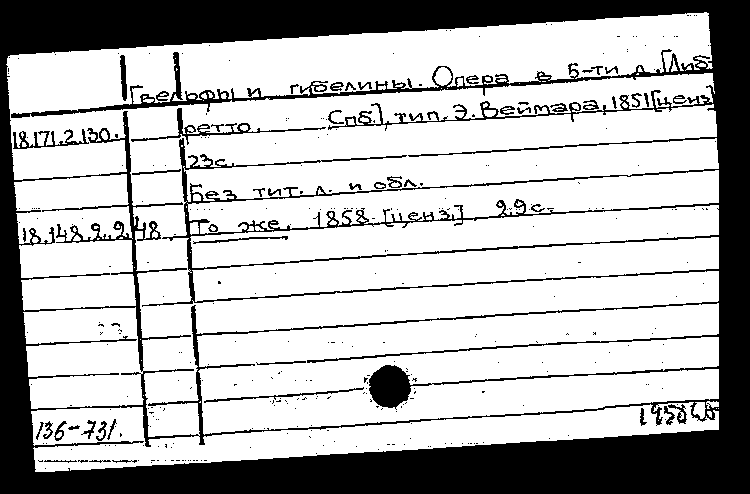 Гвельфы и гибелины. Опера в 5-ти д. [Либ-
18.171.2.130. ретто. Спб.], тип. Э. Веймара, 1851 [ценз.]
23с.
Без тит. л. и обл.
18.148.2.248. То же. 1858 [ценз.] 29с.
136-731.